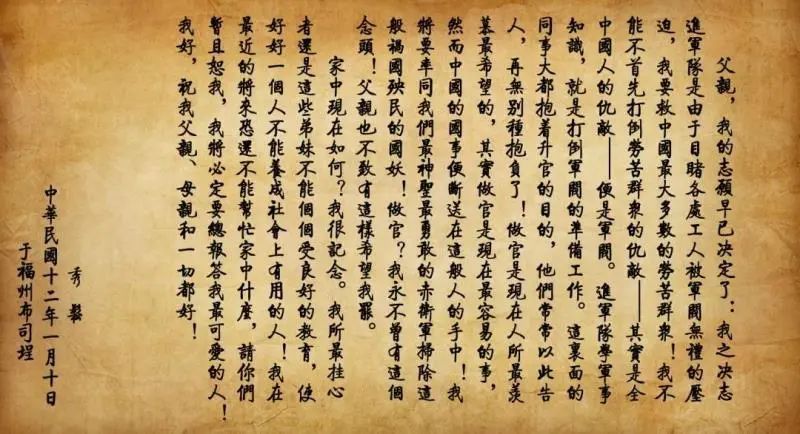 父親，我的志願早已決定了：我之決志
進軍隊是由于目睹各處工人被軍閥無禮的壓
迫，我要救中國最大多數的勞苦群衆！我不
能不首先打倒勞苦群衆的仇敵——其實是全
中國人的仇敵——便是軍閥。進軍隊學軍事
知識，就是打倒軍閥的準備工作。這裏面的
同事大都抱着升官的目的，他們常常以此告
人，再無別種抱負了！做官是現在人所最羨
慕最希望的，其實做官是現在最容易的事，
然而中國的國事便斷送在這般人的手中！我
將要率同我們最神聖最勇敢的赤衛軍掃除這
般禍國殃民的國妖！做官？我永不曾有這個
念頭！父親也不致有這樣希望我罷。
家中現在如何？我很記念。我所最挂心
者還是這些弟妹不能個個受良好的教育，使
好好一個人不能養成社會上有用的人！我在
最近的將來恐還不能幫忙家中什麽，請你們
暫且恕我，我將必定要總報答我最可愛的人！
我好，祝我父親、母親和一切都好！
秀鬆
中華民國十二年一月十日
于福州布司埕